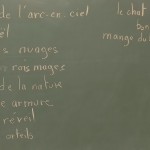 de l'arc-en-ciel
el
s nuages
rois mages
de la nature
e armure
réveil
orteils
le chat
bon
mango du